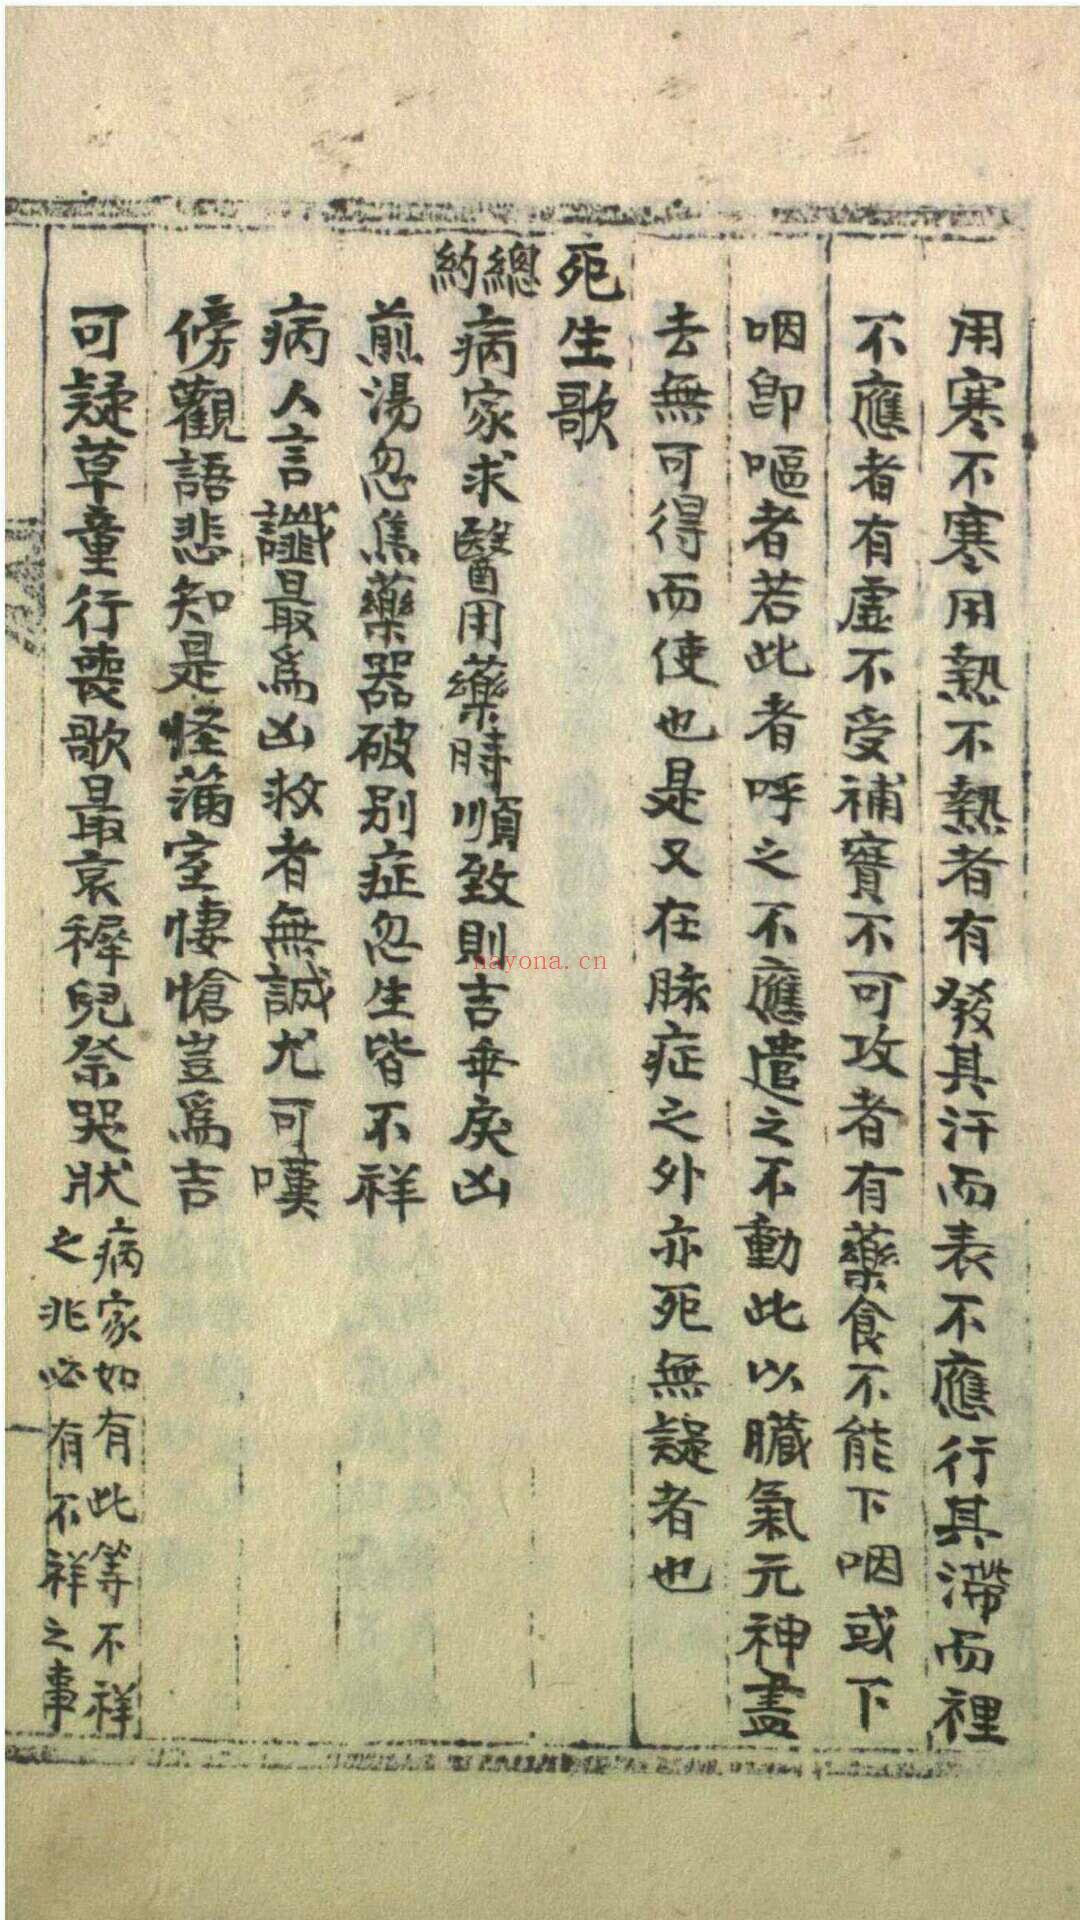 用寒不寒用熱不熱者有發其汗而表不應行其滯而裡
不應者有虛不受補實不可攻者有藥食不能下咽或下
咽卽嘔者若此者呼之不應遣之不動此以臟氣元神盡
去無可得而使也是又在脉症之外亦死無疑者也
死生歌
總約
病家求醫用藥時順致則吉乖戾凶
煎湯忽焦藥器破別症忽生皆不祥
病人言讖最爲凶救者無誠尤可嘆
傍觀語悲知是怪滿室悽愴豈爲吉
可疑草童行喪歌最哀穉兒祭哭狀
病家如有此等不祥
之兆必有不祥之事
nayona.cn